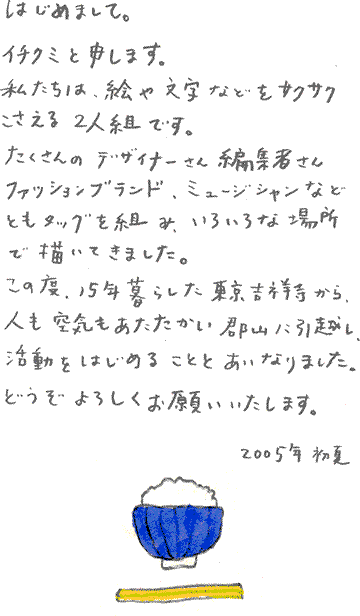 はじめまして。
イチクミと申します。
私たちは、絵や文字などをサクサク
こさえる2人組です。
たくさんのデザイナーさん編集者さん
ファッションブランド、ミュージシャンなど
ともタッグを組み、いろいろな場所
で描いてきました。
この度、15年暮らした東京吉祥寺から、
人も空気もあたたかい郡山に引越し、
活動をはじめることとあいなりました。
どうぞよろしくお願いいたします。
2005年初夏